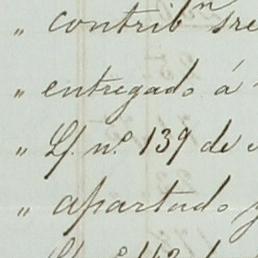 " contrib.n sre
" entregado á
" Lf. n.o 139 de
" apartado y